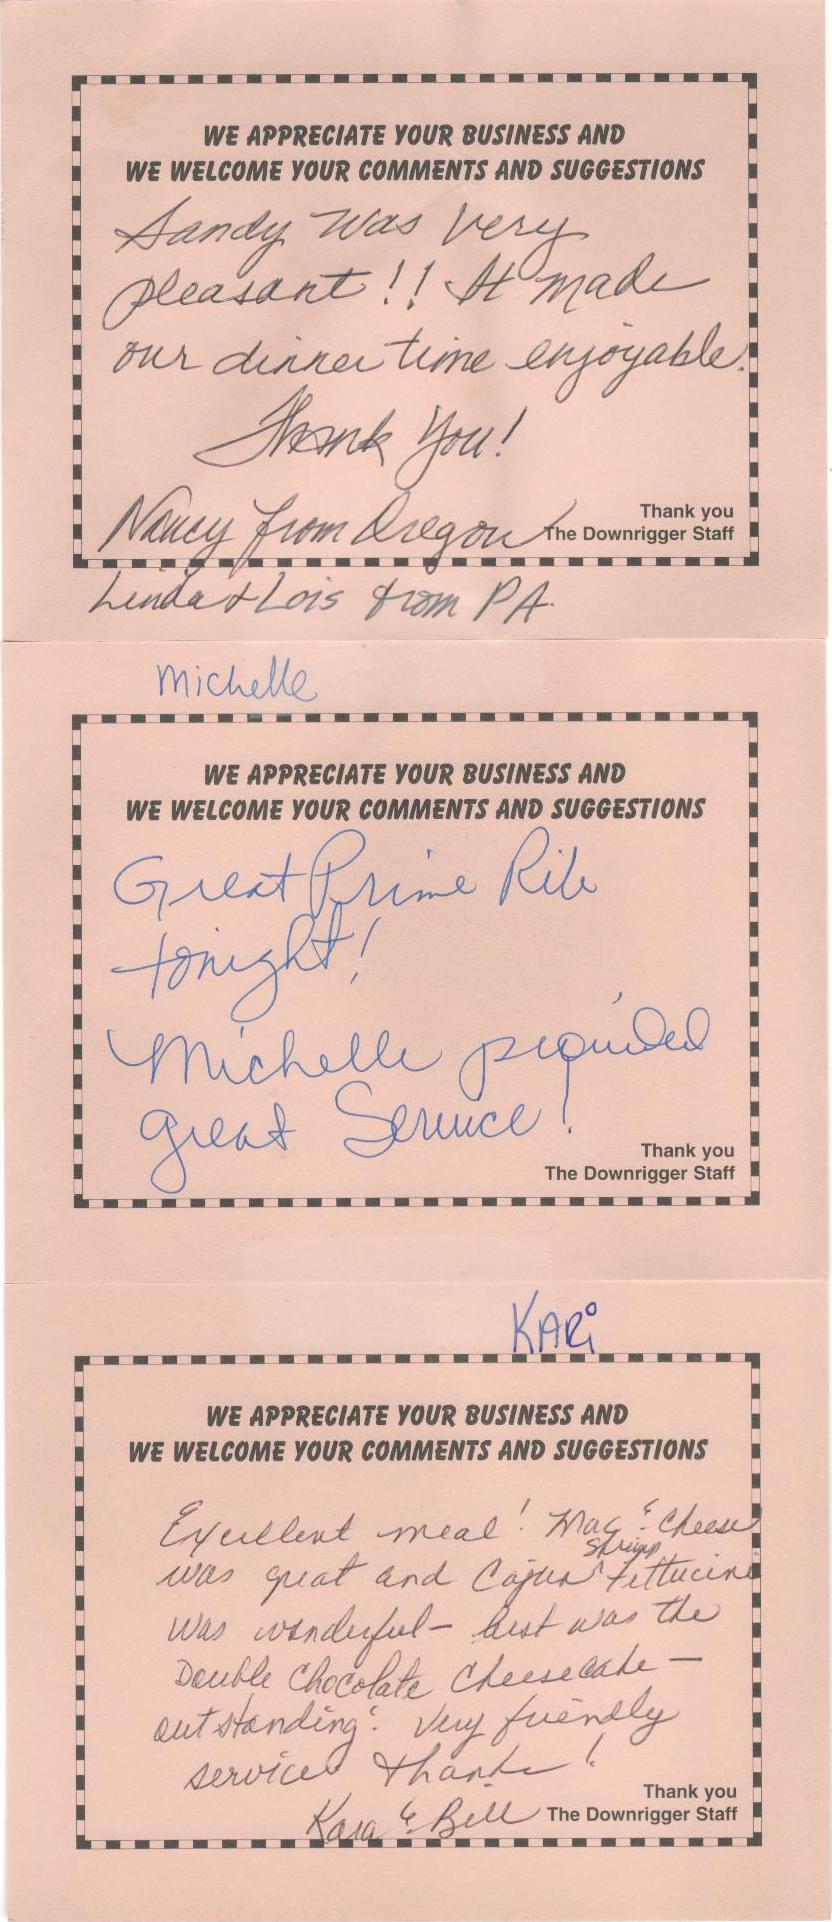 WE APPRECIATE YOUR BUSINESS AND
WE WELCOME YOUR COMMENTS AND SUGGESTIONS
Sandy was very
pleasant!! It made
our dinner time enjoyable.
Thank You!
Nancy from Oregon
Thank you
The Downrigger Staff
Linda & Lois from PA.
Michelle
WE APPRECIATE YOUR BUSINESS AND
WE WELCOME YOUR COMMENTS AND SUGGESTIONS
Great Prime Rib
tonight!
Michelle provided
great Service!
Thank you
The Downrigger Staff
KARi
WE APPRECIATE YOUR BUSINESS AND
WE WELCOME YOUR COMMENTS AND SUGGESTIONS
Excellent meal! Mac & Cheese
was great and Cajun Shrimp Fettucine
was wonderful - best was the
Double Chocolate Cheesecake -
outstanding! Very friendly
service thanks!
Kara & Bill
Thank you
The Downrigger Staff